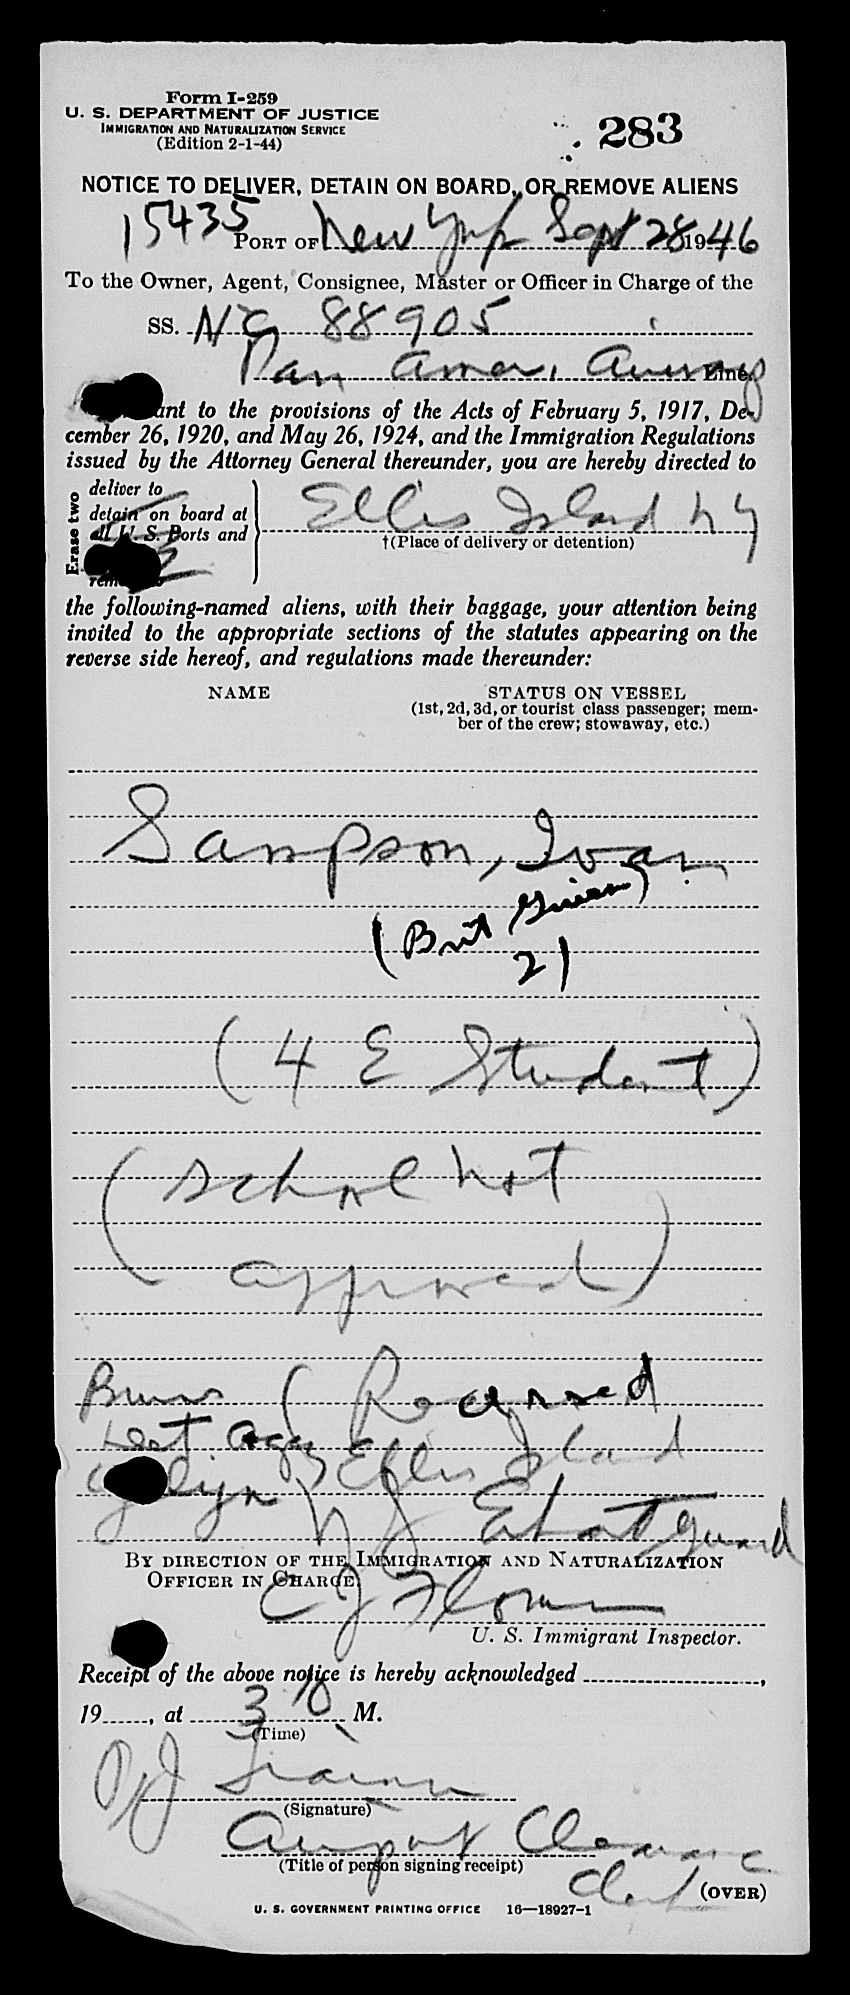 Form I-259
U. S. DEPARTMENT OF JUSTICE
IMMIGRATION AND NATURALIZATION SERVICE
(Edition 2-1-44)
283
NOTICE TO DELIVER, DETAIN ON BOARD, OR REMOVE ALIENS
15435
PORT OF New York Sept 28 1946
To the Owner, Agent, Consignee, Master or Officer in Charge of the
SS. NC 88905
Pan Amer. Airways Line
ant to the provisions of the Acts of February 5, 1917, De-
cember 26, 1920, and May 26, 1924, and the Immigration Regulations
issued by the Attorney General thereunder, you are hereby directed to
Erase two
deliver to
detain on board at
all U. S. Ports and
Ellis Island N Y
†(Place of delivery or detention)
the following-named aliens, with their baggage, your attention being
invited to the appropriate sections of the statutes appearing on the
reverse side hereof, and regulations made thereunder:
NAME
STATUS ON VESSEL
(1st, 2d, 3d, or tourist class passenger; mem-
ber of the crew; stowaway, etc.)
Sampson, Ivan
(Brit Guiana)
21
(4 E Student)
(School not
approved)
Received
Ellis Island
N Y
Guard
BY DIRECTION OF THE IMMIGRATION AND NATURALIZATION
OFFICER IN CHARGE
U. S. Immigrant Inspector.
Receipt of the above notice is hereby acknowledged
19 , at 3 10 M.
(Time)
(Signature)
Airport Clearance
(Title of person signing receipt)
Clerk
(OVER)
U. S. GOVERNMENT PRINTING OFFICE 16—18927-1